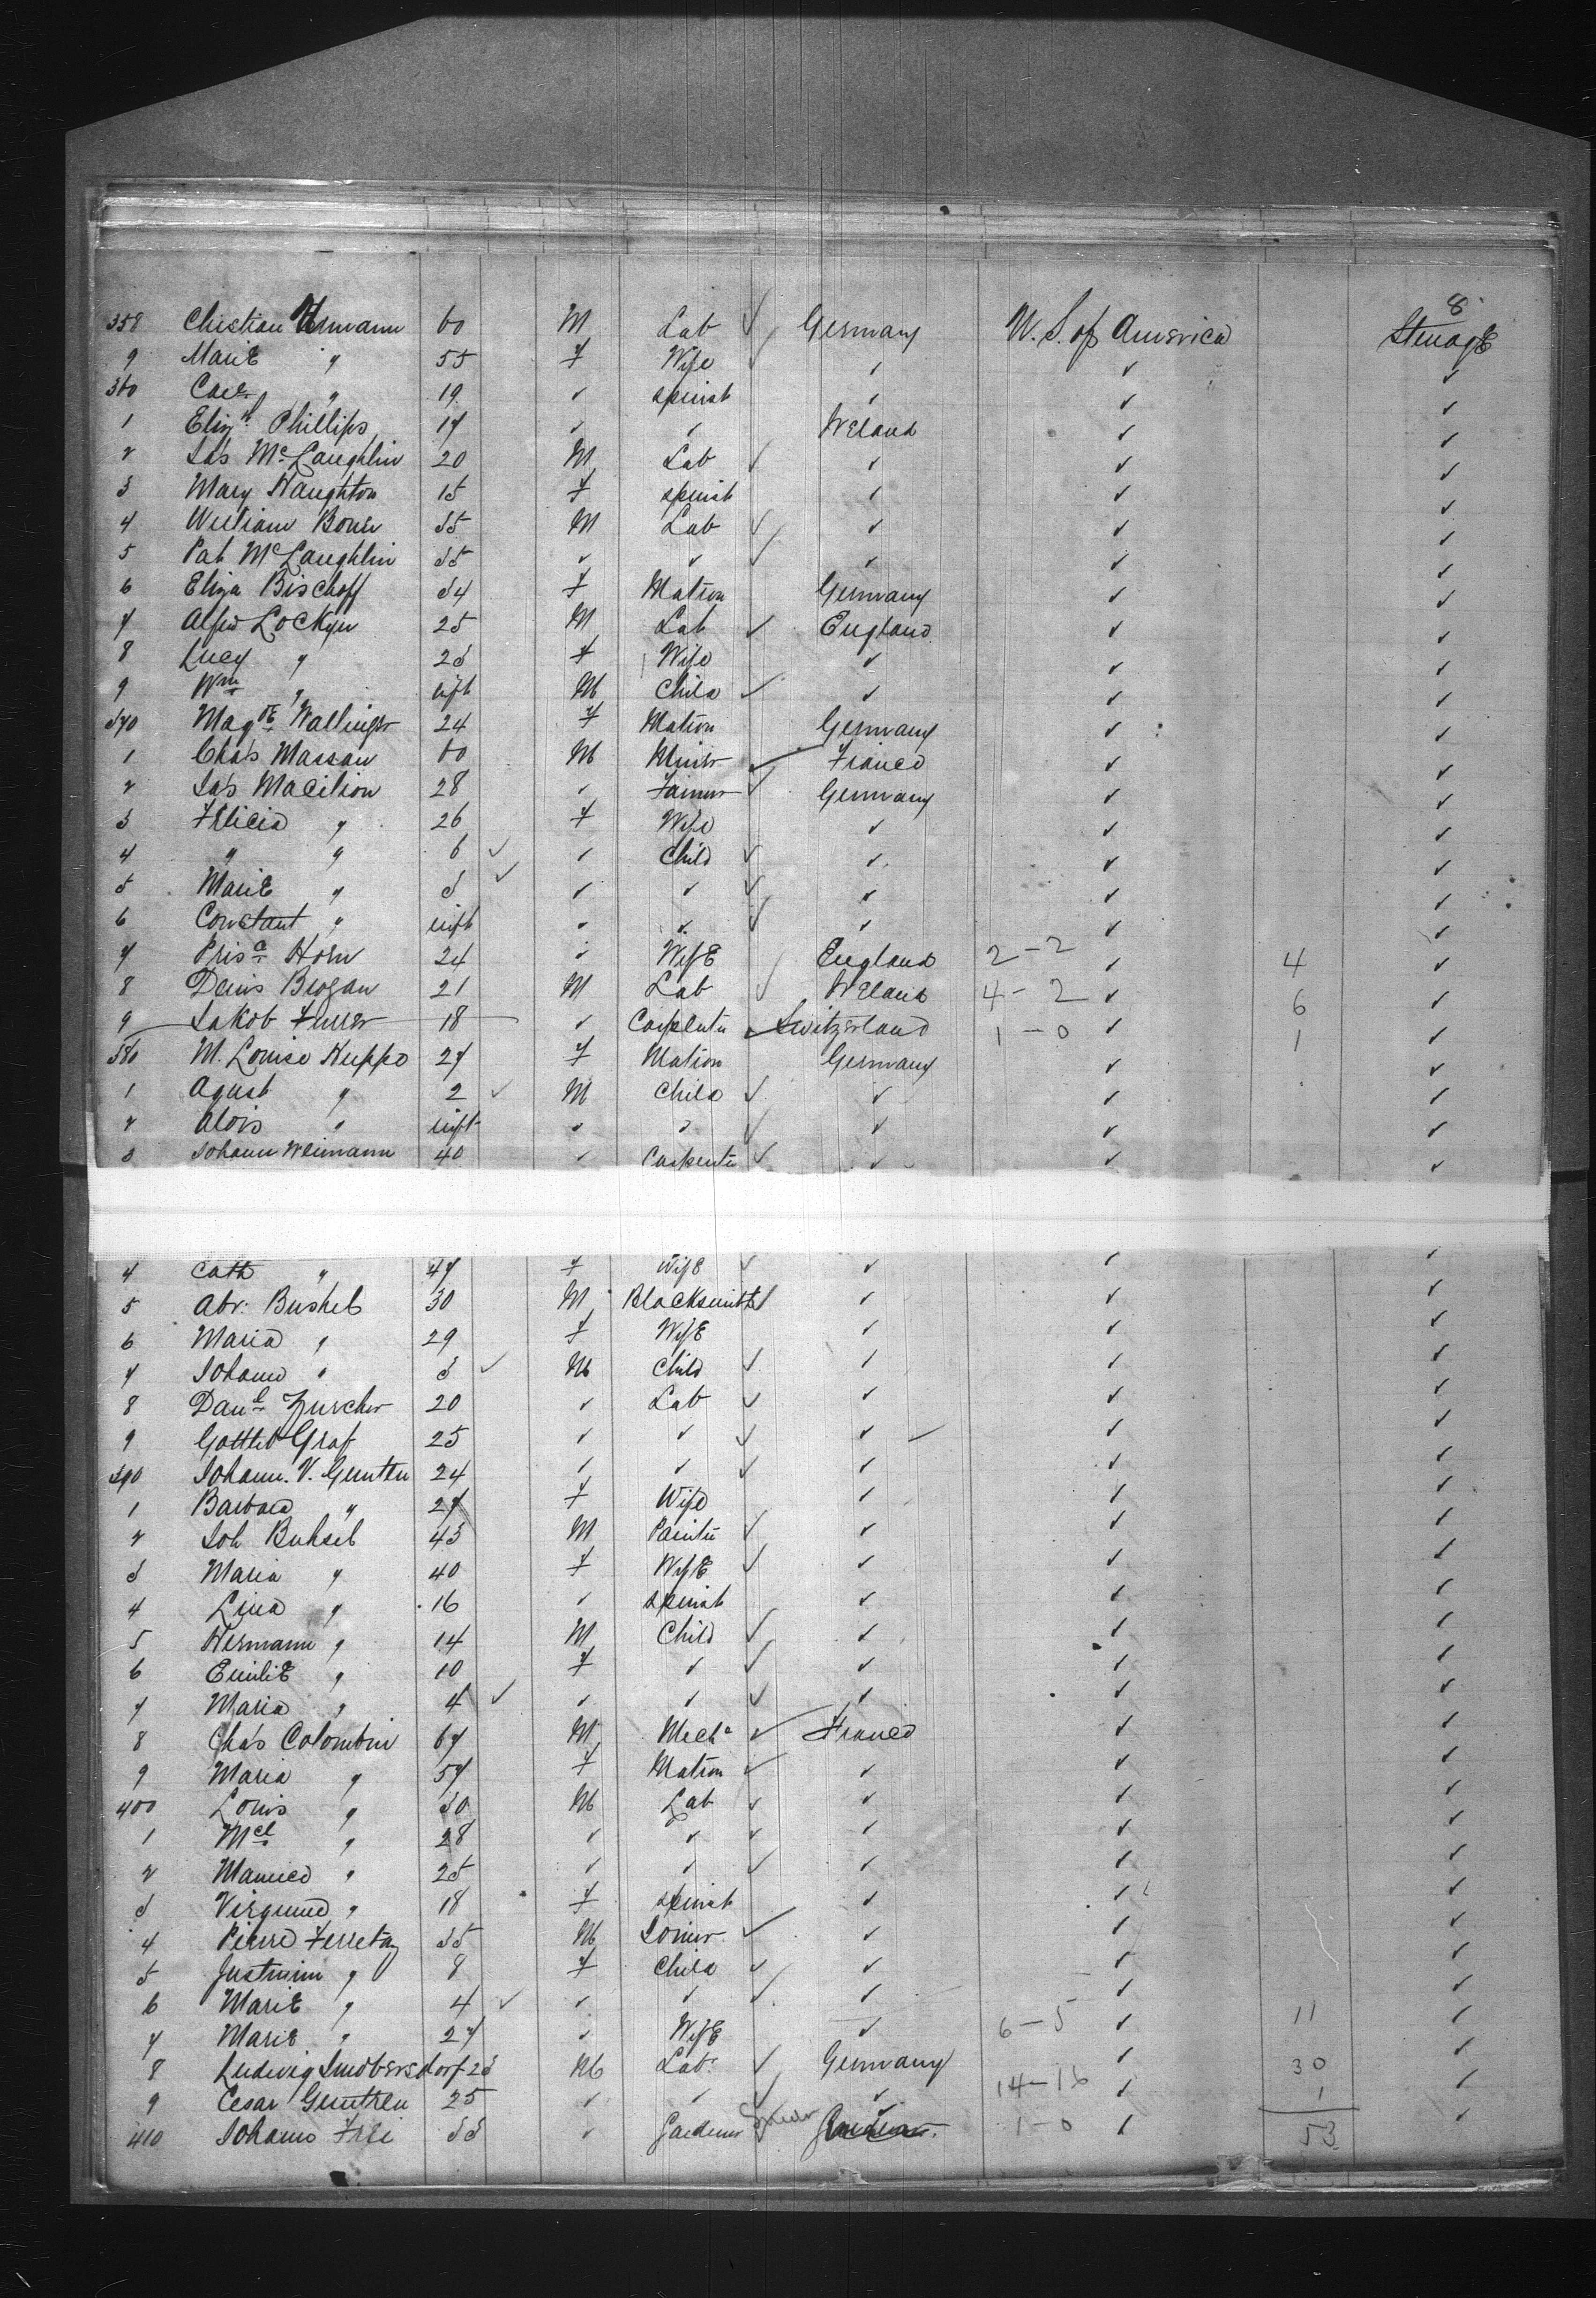 8
358 Christian Urmann 60 M Lab ✓ Germany U. S. of America Steerage
9 Marie " 55 F Wife ✓ ✓ ✓ ✓
360 " 19 ✓ Spinst ✓ ✓ ✓
1 Elizth Phillips 17 ✓ ✓ Ireland ✓ ✓
2 Jas McLaughlin 20 M Lab ✓ ✓ ✓ ✓
3 Mary Haughton 15 F Spinst ✓ ✓ ✓
4 William Boner 35 M Lab ✓ ✓ ✓ ✓
5 Pat McLaughlin 35 ✓ ✓ ✓ ✓ ✓ ✓
6 Eliza Bischoff 34 F Matron Germany ✓ ✓
7 Alfred Lockyer 25 M Lab ✓ England ✓ ✓
8 Lucy " 23 F Wife ✓ ✓ ✓
9 Wm " inft M Child ✓ ✓ ✓ ✓
370 Magde Wallinger 24 F Matron Germany ✓ ✓
1 Chas Massau 60 M Miner ✓ France ✓ ✓
2 Jas Macilion 28 ✓ Farmer ✓ Germany ✓ ✓
3 Felicia " 26 F Wife ✓ ✓ ✓
4 " " 6 ✓ ✓ Child ✓ ✓ ✓ ✓
5 Marie " 3 ✓ ✓ ✓ ✓ ✓ ✓ ✓
6 Constant " inft ✓ ✓ ✓ ✓ ✓ ✓
7 Prisa Horn 24 ✓ Wife England 2-2 ✓ 4 ✓
8 Denis Brogan 21 M Lab ✓ Ireland 4-2 ✓ 6 ✓
9 Jakob Furrer 18 ✓ Carpenter ✓ Switzerland 1-0 ✓ 1 ✓
380 M. Louise Huppe 27 F Matron Germany ✓ ✓
1 Agust " 2 ✓ M Child ✓ ✓ ✓ ✓
2 Alois " inft ✓ ✓ ✓ ✓ ✓ ✓
3 Johann Weimann 40 ✓ Carpenter ✓ ✓ ✓ ✓
4 Cath " 47 F Wife ✓ ✓ ✓ ✓
5 Abr: Bushel 30 M Blacksmith ✓ ✓ ✓ ✓
6 Maria " 29 F Wife ✓ ✓ ✓
7 Johann " 3 ✓ M Child ✓ ✓ ✓ ✓
8 Danl Zurcher 20 ✓ Lab ✓ ✓ ✓ ✓
9 Gottleb Graf 25 ✓ ✓ ✓ ✓ ✓ ✓
390 Johann. V. Gunten 24 ✓ ✓ ✓ ✓ ✓ ✓
1 Barbara " 27 F Wife ✓ ✓ ✓
2 Joh Buhsel 43 M Painter ✓ ✓ ✓ ✓
3 Maria " 40 F Wife ✓ ✓ ✓ ✓
4 Lina " 16 ✓ Spinst ✓ ✓ ✓
5 Hermann " 14 M Child ✓ ✓ ✓ ✓
6 Emilie " 10 F ✓ ✓ ✓ ✓ ✓
7 Maria " 4 ✓ ✓ ✓ ✓ ✓ ✓ ✓
8 Chas Colombin 67 M Mech ✓ France ✓ ✓
9 Maria " 57 F Matron ✓ ✓ ✓ ✓
400 Louis " 30 M Lab ✓ ✓ ✓ ✓
1 Mcl " 28 ✓ ✓ ✓ ✓ ✓ ✓
2 " 25 ✓ ✓ ✓ ✓ ✓ ✓
3 " 18 F Spinst ✓ ✓ ✓
4 Pierre Ferretay 35 M Joiner ✓ ✓ ✓ ✓
5 " 8 F Child ✓ ✓ ✓ ✓
6 Marie " 4 ✓ ✓ ✓ ✓ ✓ ✓ ✓
7 Marie " 27 ✓ Wife ✓ 6-5 ✓ 11 ✓
8 Ludwig 23 M Lab ✓ Germany ✓ 30 ✓
9 Cesar 25 ✓ ✓ ✓ ✓ 14-16 ✓ 1 ✓
410 Johann Frei 33 ✓ Gardener ✓ 1-0 ✓ 53 ✓